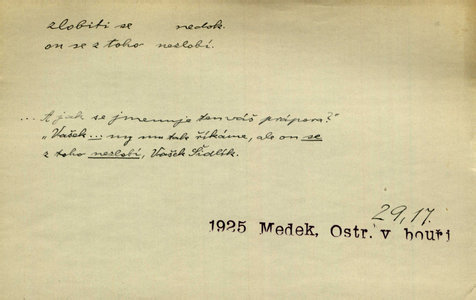 zlobiti se nedok.
on se z toho nezlobí.
... A jak se jmenuje ten váš prápora?"
"Vašek ... my mu tak říkáme, ale on se
z toho nezlobí, Vašek Šidlík.
29,17.
1925 Medek, Ostr. v bouři